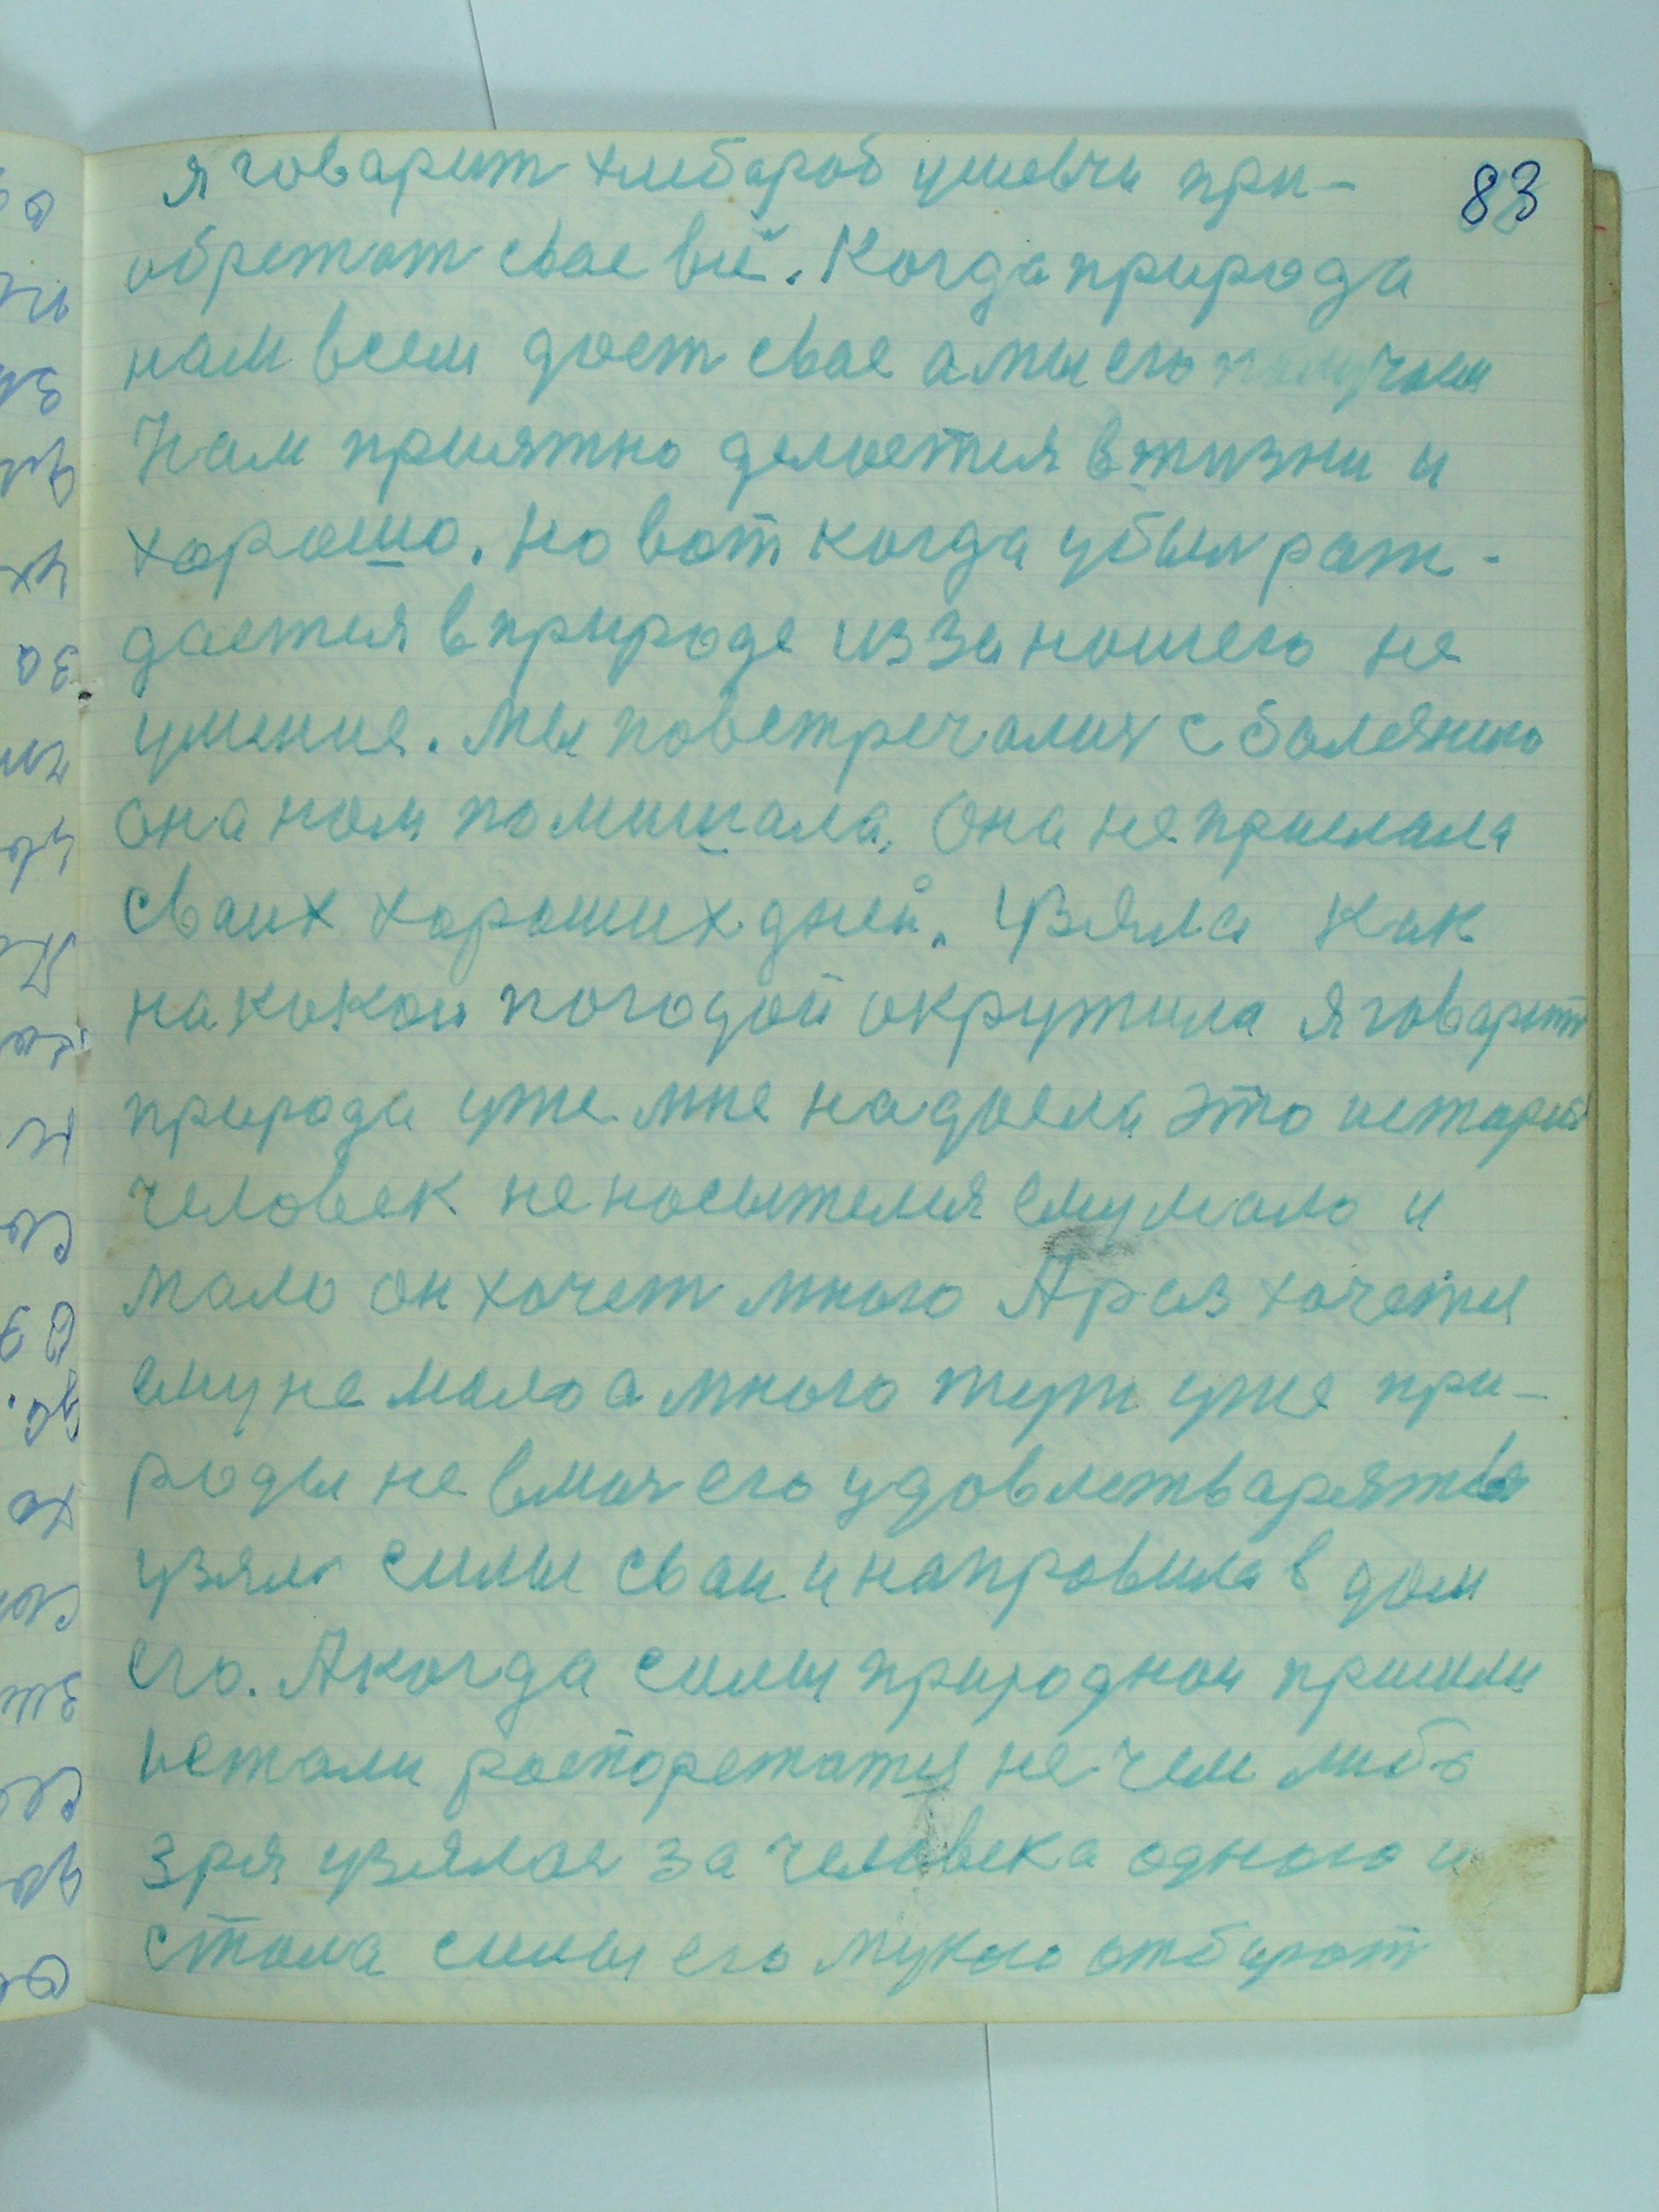 83
я говарит хлибароб умевчи при-
обретат свае вие. Когда природа
нам всем дает свае а мы его получаем
Нам приятно делается в жизни и
хорошо. Но вот когда убыл рож-
дается в природе из за нашего не
умение. Мы повстречались с балезнию
она нам помишала, Она не прислала
сваих хороших дней. Узяла как
на какои погодой окружила я говарит
природа уже мне надоела это история
человек не насытелся ему мало и
мало он хочет много А раз хочется
ему не мало а много тут уже при-
роды не вмоч его удовлетварять
узяла силы сваи и направила в дом
его. А когда силы природнои пришли
истали распорежатся не чем либо
зря узялас за человека одного и
стала силы его мукою отбират